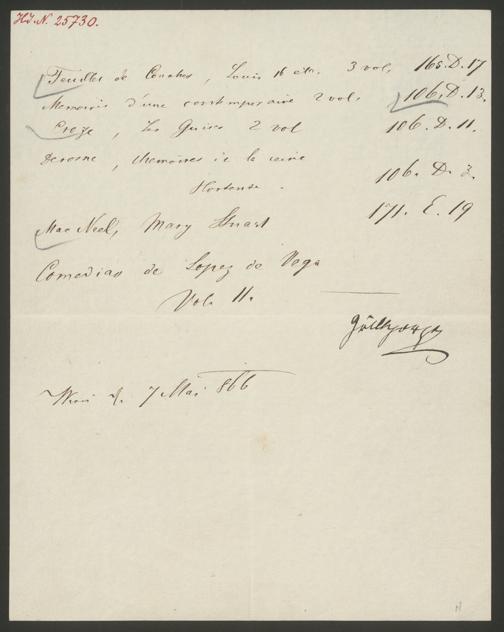 Hd. N. 25730.
Feuillet de Conches, Louis 16 etc. 3 vol. 165. D. 17
Memoires d'une contemporaine 2 vol. 106. D. 13.
Croze, Les Guises 2 vol 106. D. 11.
Derosne, Memoires de la reine
Hortense. 106. D. 3.
Mac Neel, Mary Stuart 171. E. 19
Comedias de Lopez de Vega
Vol. II.
Wien d. 7 Mai 866